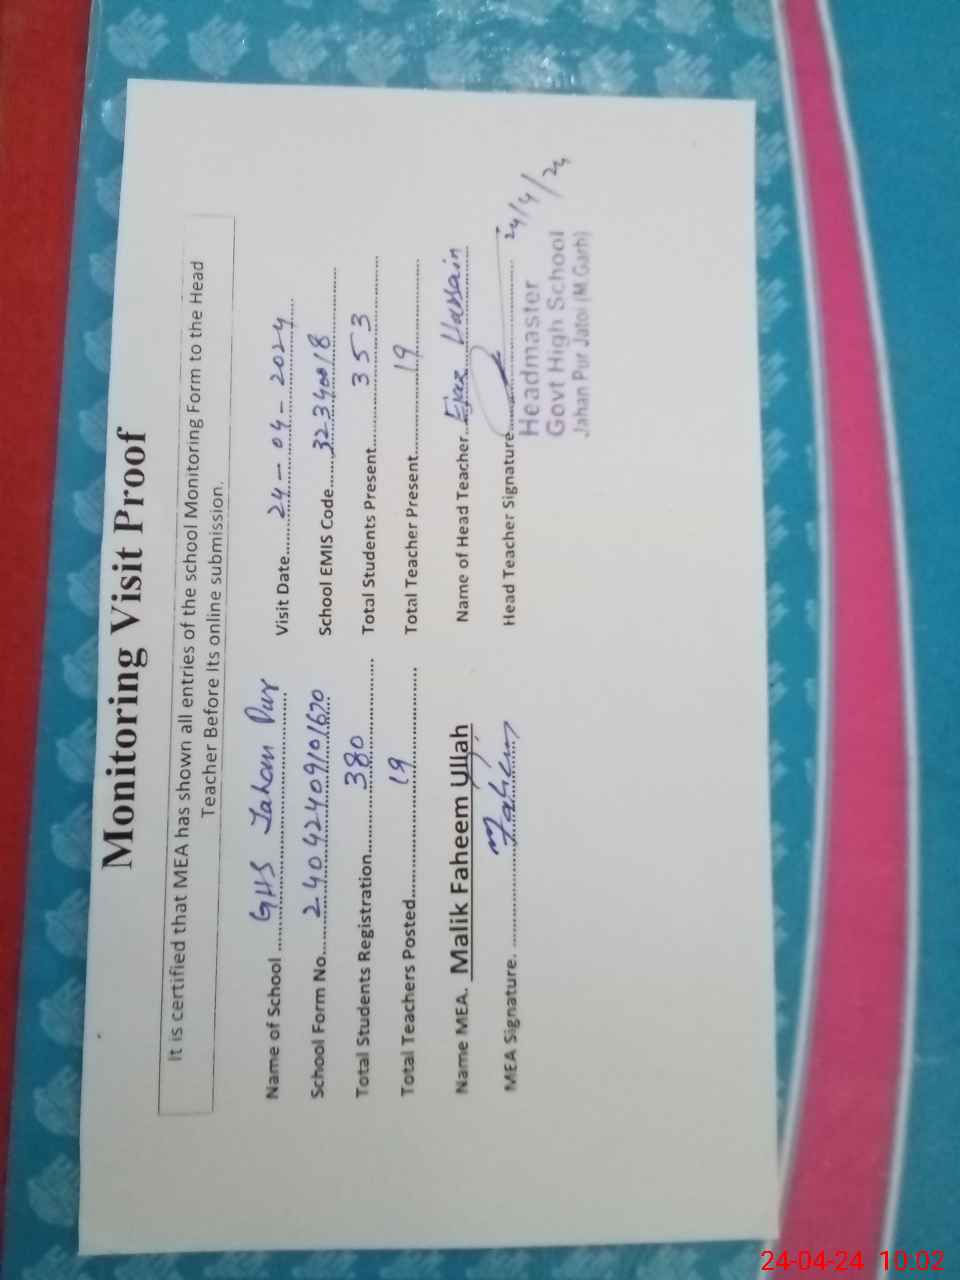 Monitoring Visit Proof
It is certified that MEA has shown all entries of the school Monitoring Form to the Head
Teacher Before Its online submission.
Name of School GHS Jahan Pur Visit Date 24-04-2024
School Form No. 24042409101670 School EMIS Code 32340018
Total Students Registration 380 Total Students Present 353
Total Teachers Posted 19 Total Teacher Present 19
Name MEA. Malik Faheem Ullah Name of Head Teacher Ejaz Hassain
MEA Signature. Faheem Head Teacher Signature 24/4/24
Headmaster
Govt High School
Jahan Pur Jatoi (M.Garh)
24-04-24 10:02